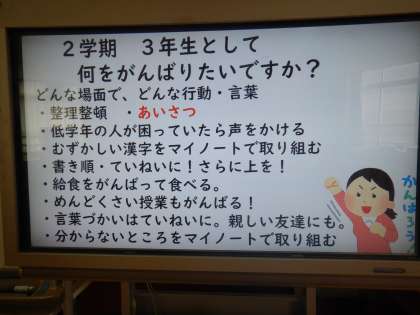 ２学期　３年生として
何をがんばりたいですか？
どんな場面で、どんな行動・言葉
・整理整頓　・あいさつ
・低学年の人が困っていたら声をかける
・むずかしい漢字をマイノートで取り組む
・書き順・ていねいに！さらに上を！
・給食をがんばって食べる。
・めんどくさい授業もがんばる！
・言葉づかいはていねいに。親しい友達にも。
・分からないところをマイノートで取り組む
がんばろう